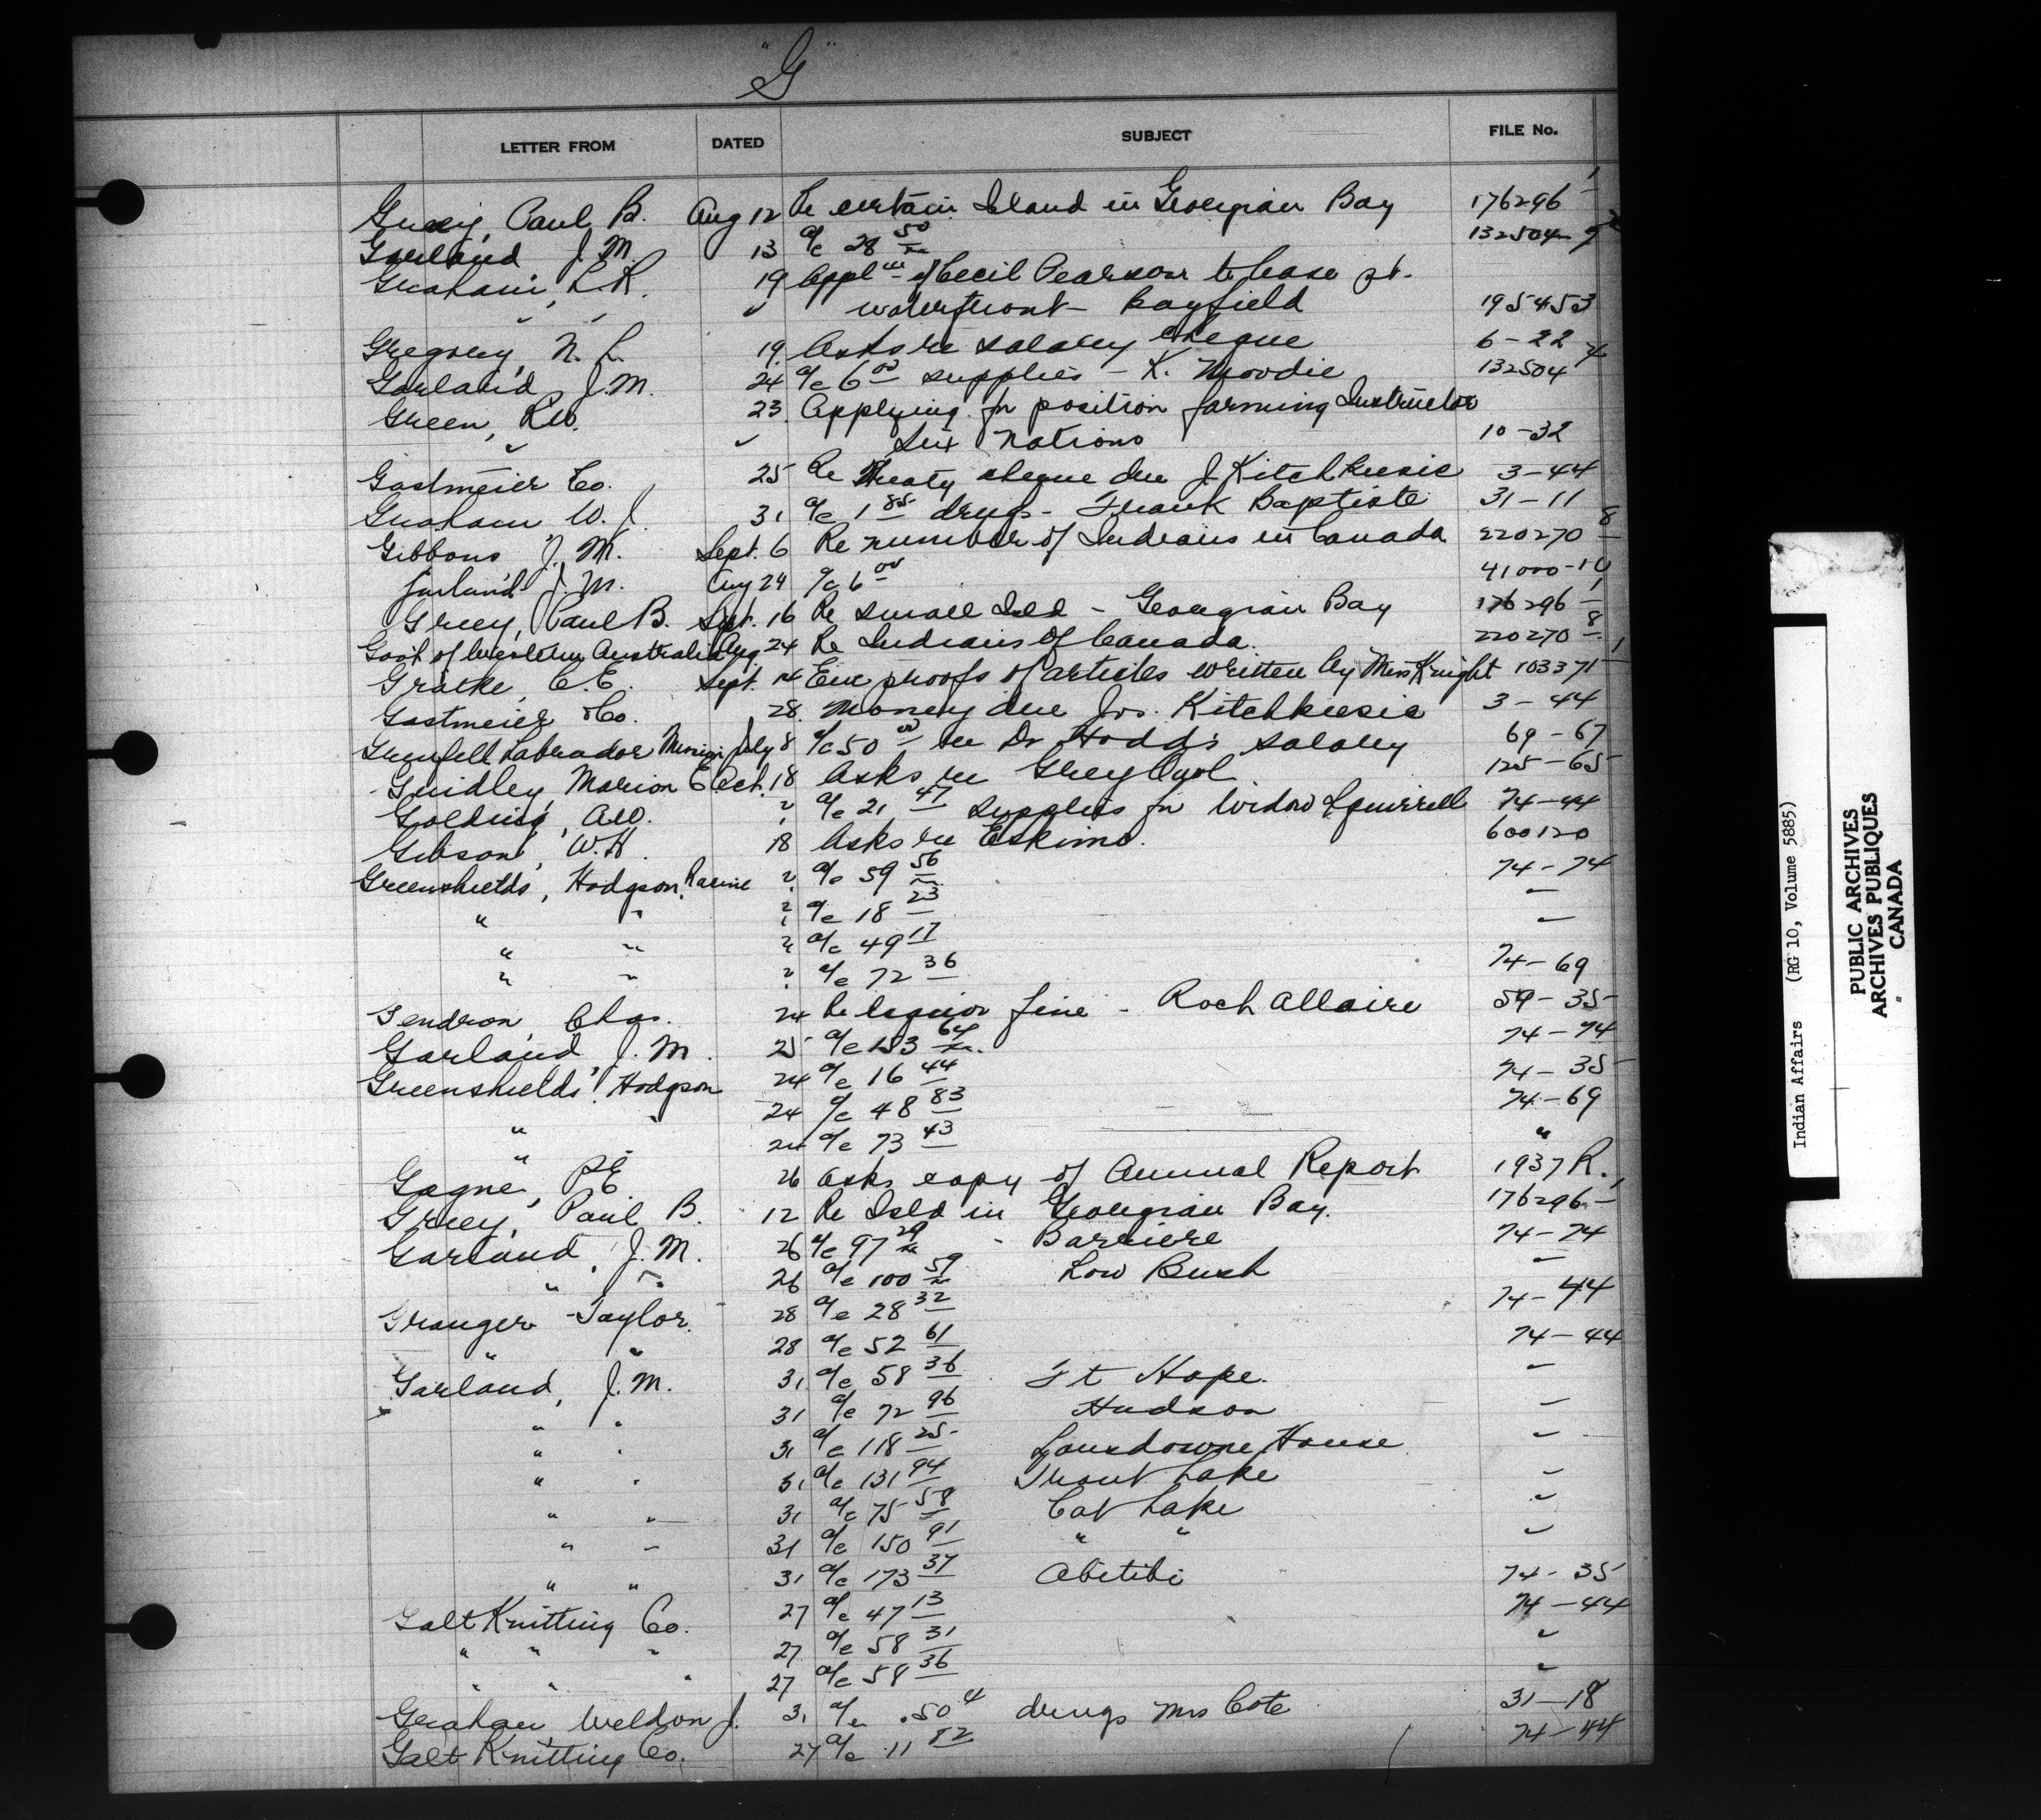 "G"
LETTER FROM DATED SUBJECT FILE No.
Gruey, Paul B. Aug 12 Re certain Island in Georgian Bay 176296-1
Garland J. M. 13 a/c 28 50 132504-
Graham, R. 19 Appl'n of Cecil Pearson to lease pt.
" " " waterfront - Bayfield 195453
Gregory, N. L. 19 Asks re salary cheque 6-22
Garland J.M. 24 a/c 6 00 supplies - K. Moodie 132504
Green, RW. 23 Applying for position farming Instructor
" " Six Nations 10-32
Gastmeier Co. 25 Re Treaty cheque due J. Kitchkeesic 3-44
Graham W. J. 31 a/c 1 85 drugs - Frank Baptiste 31-11
Gibbons J. M. Sept. 6 Re number of Indians in Canada 220270-8
Garland J. M. Aug 24 a/c 6 00 41000-10
Gruey, Paul B. Sept. 16 Re small Isld - Georgian Bay 176296-1
Gov't of Western Australia Aug 24 Re Indians of Canada 220270-8
Gratke, C.E. Sept. 14 Enc proofs of articles written by Miss Knight 103371-1
Gastmeier & Co. 28 Money due Jos. Kitchkeesic 3-44
Grenfell Labrador Mission July 8 a/c 50 00 re Dr Hodd's salary 69-67
Gridley, Marion E. Oct. 18 Asks re Grey Owl 125-65
Golding, A.W. ? a/c 21 47 supplies for Widow Squirrell 74-44
Gibson, W.H. 18 Asks re Eskimo. 600120
Greenshields, Hodgson, Racine ? a/c 59 56 74-74
" " ? a/c 18 23 "
" " ? a/c 49 17 "
" " ? a/c 72 36 74-69
Gendron, Chas. 24 Re liquor fine - Roch Allaire 59-35
Garland, J. M. 25 a/c 153 64 74-74
Greenshields, Hodgson 24 a/c 16 44 74-35
24 a/c 48 83 74-69
" 24 a/c 73 43 "
Gagne, P.E. 26 Asks copy of Annual Report 1937 R.
Gruey, Paul B. 12 Re Isld in Georgian Bay. 176296-1
Garland, J. M. 26 a/c 97 29 - Barriere 74-74
" " 26 a/c 100 59 Low Bush "
Granger - Taylor 28 a/c 28 32 74-44
" " 28 a/c 52 61 74-44
Garland, J. M. 31 a/c 58 36 Ft Hope. "
" " 31 a/c 72 96 Hudson "
" " 31 a/c 118 25 Lansdowne House "
" " 31 a/c 131 94 Trout Lake "
" " 31 a/c 75 58 Cat Lake "
" " 31 a/c 150 91 " " "
" " 31 a/c 173 37 Abitibi 74-35
Galt Knitting Co. 27 a/c 47 13 74-44
" " " 27 a/c 58 31 "
" " " 27 a/c 58 36 "
Graham Weldon J. 31 a/c .50 drugs Mrs Cote 31-18
Galt Knitting Co. 27 a/c 11 82 74-44
Indian Affairs (RG 10, Volume 5885)
PUBLIC ARCHIVES
ARCHIVES PUBLIQUES
CANADA